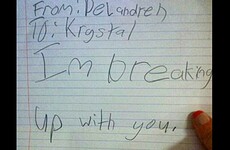 From: Delandreh
To: Krystal
Im breaking
up with you.